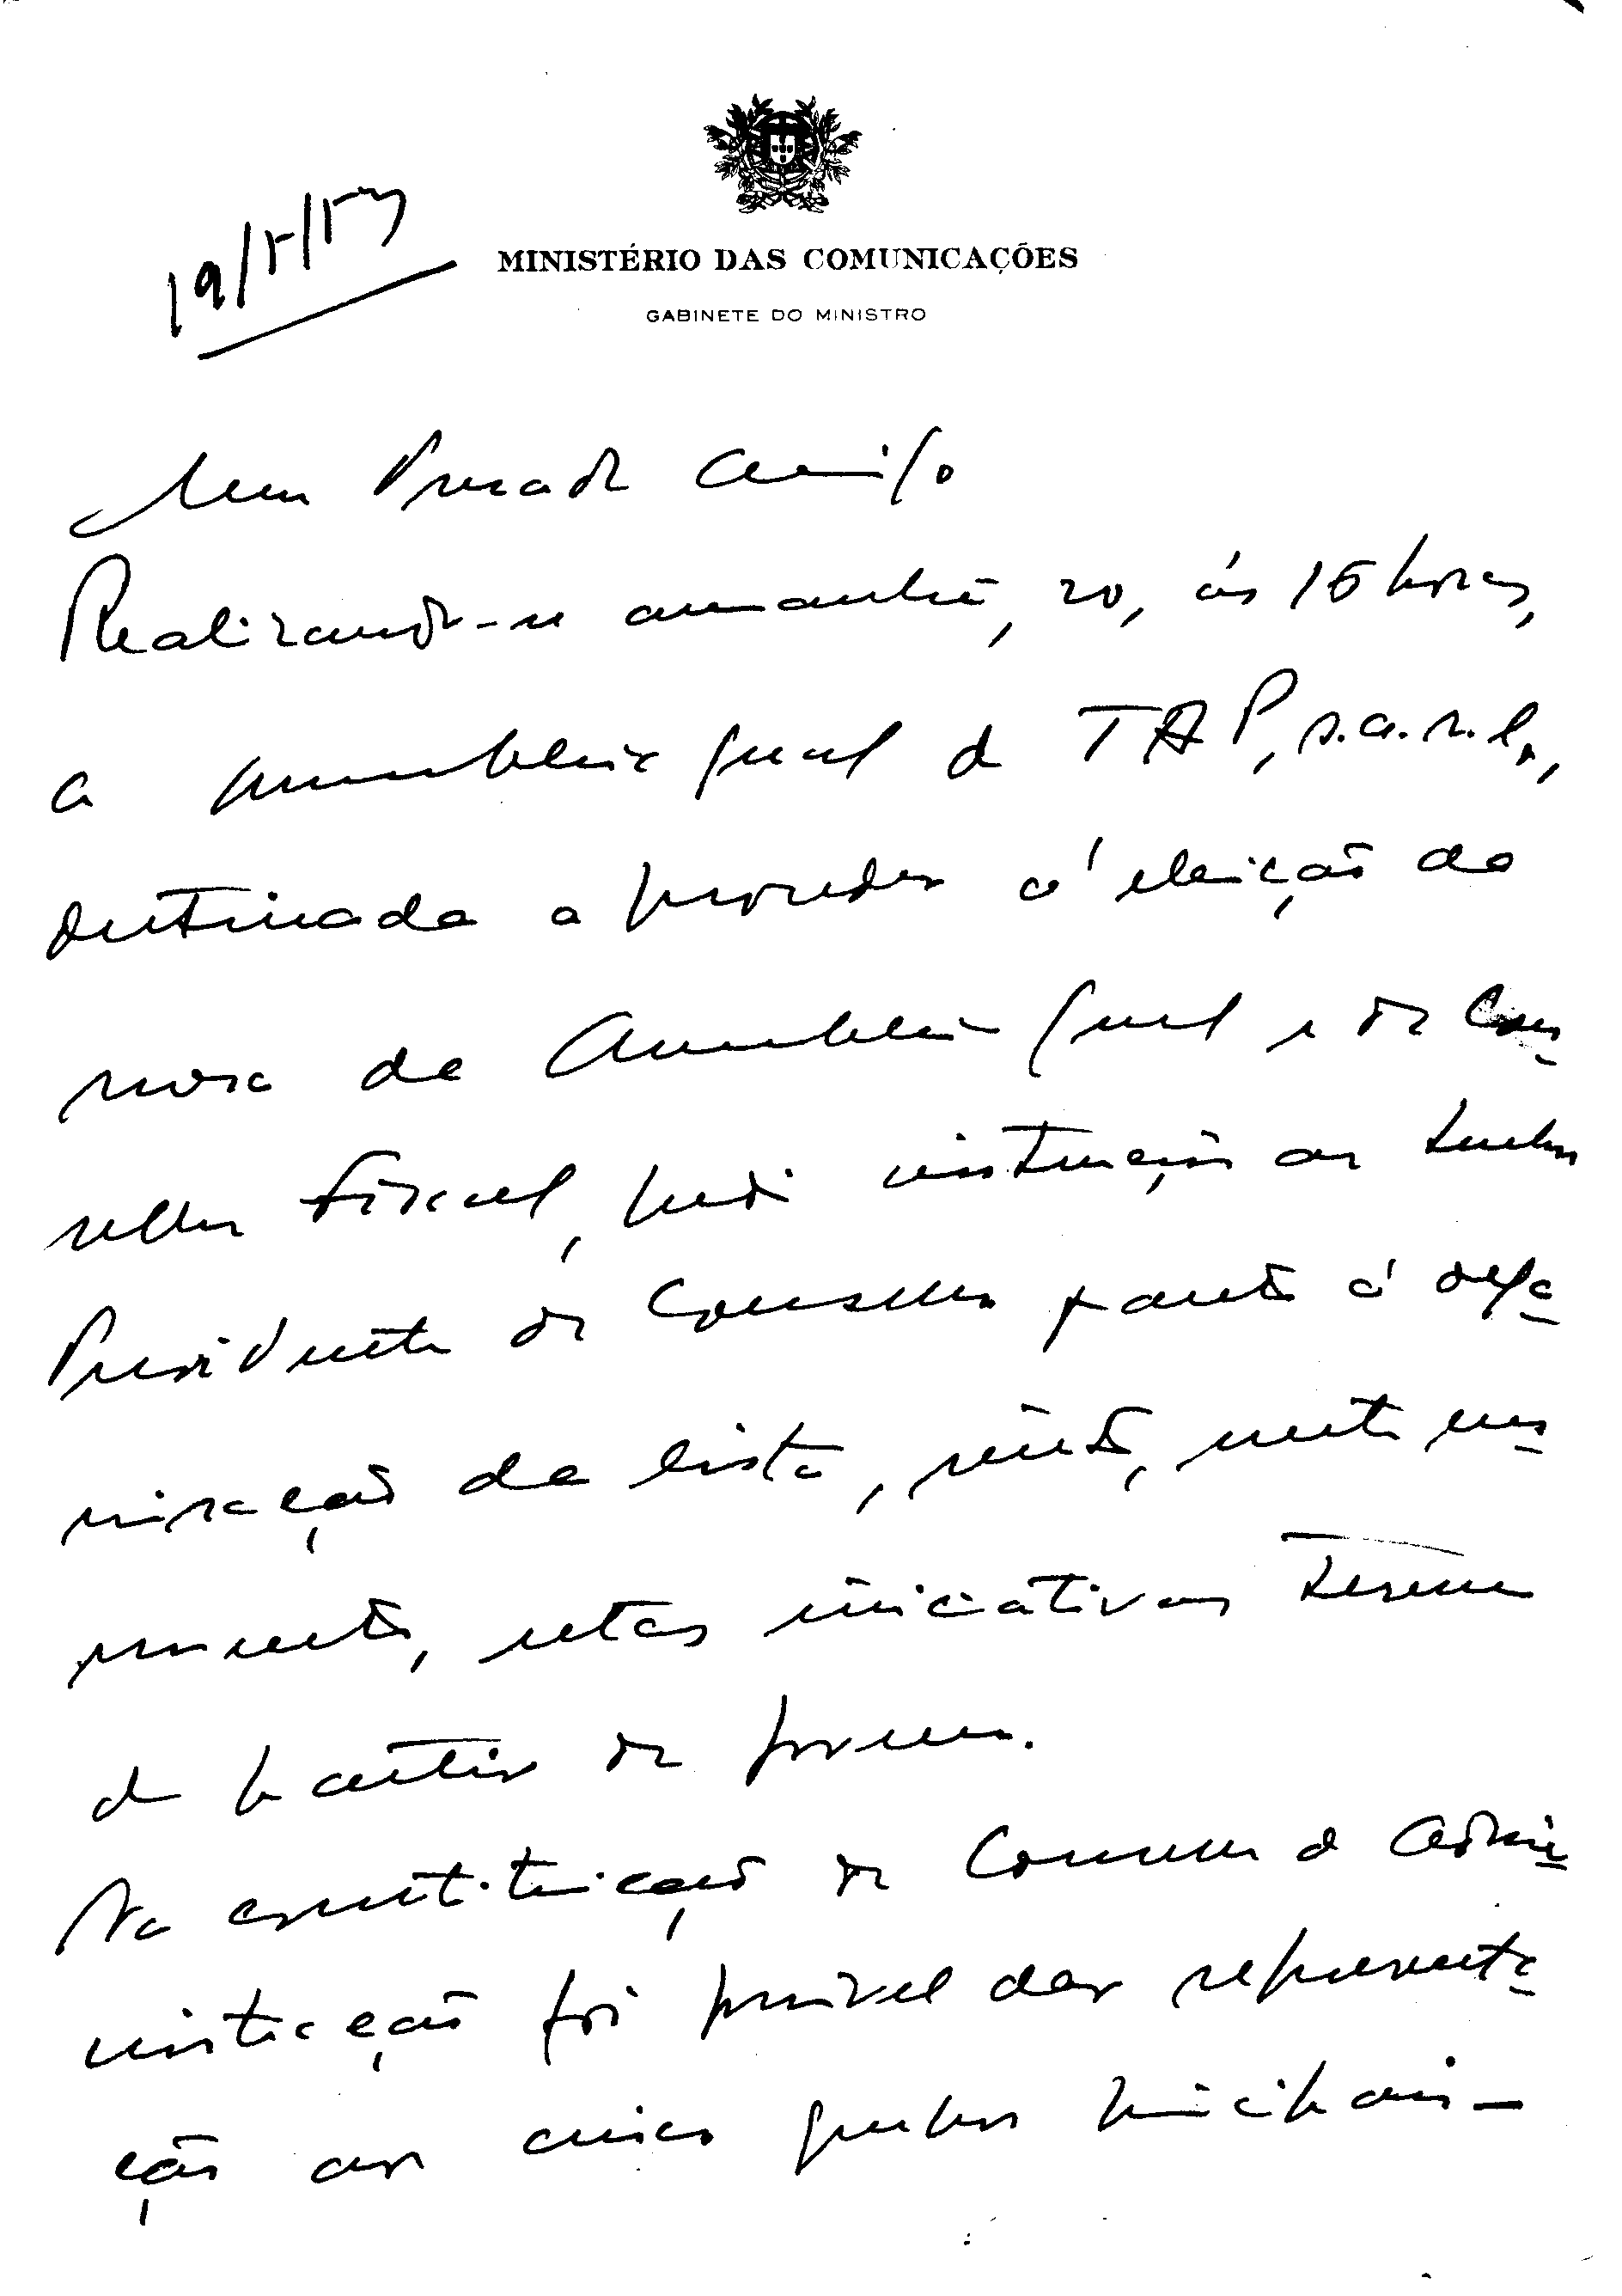 19/5/53
MINISTÉRIO DAS COMUNICAÇÕES
GABINETE DO MINISTRO
Meu Prezado Amigo
Realizando-se amanhã, 20, às 15 horas,
a assembleia geral da TAP, s.a.r.l.,
destinada a proceder à eleição da
mesa da Assembleia Geral e do Con-
selho Fiscal, pedi instruções ao Senhor
Presidente do Conselho quanto à orga-
nização da lista, visto, neste
momento, estas iniciativas terem
de partir do governo.
Na constituição do Conselho de Admi-
nistração foi possível dar representa-
ção aos cinco grupos principais -